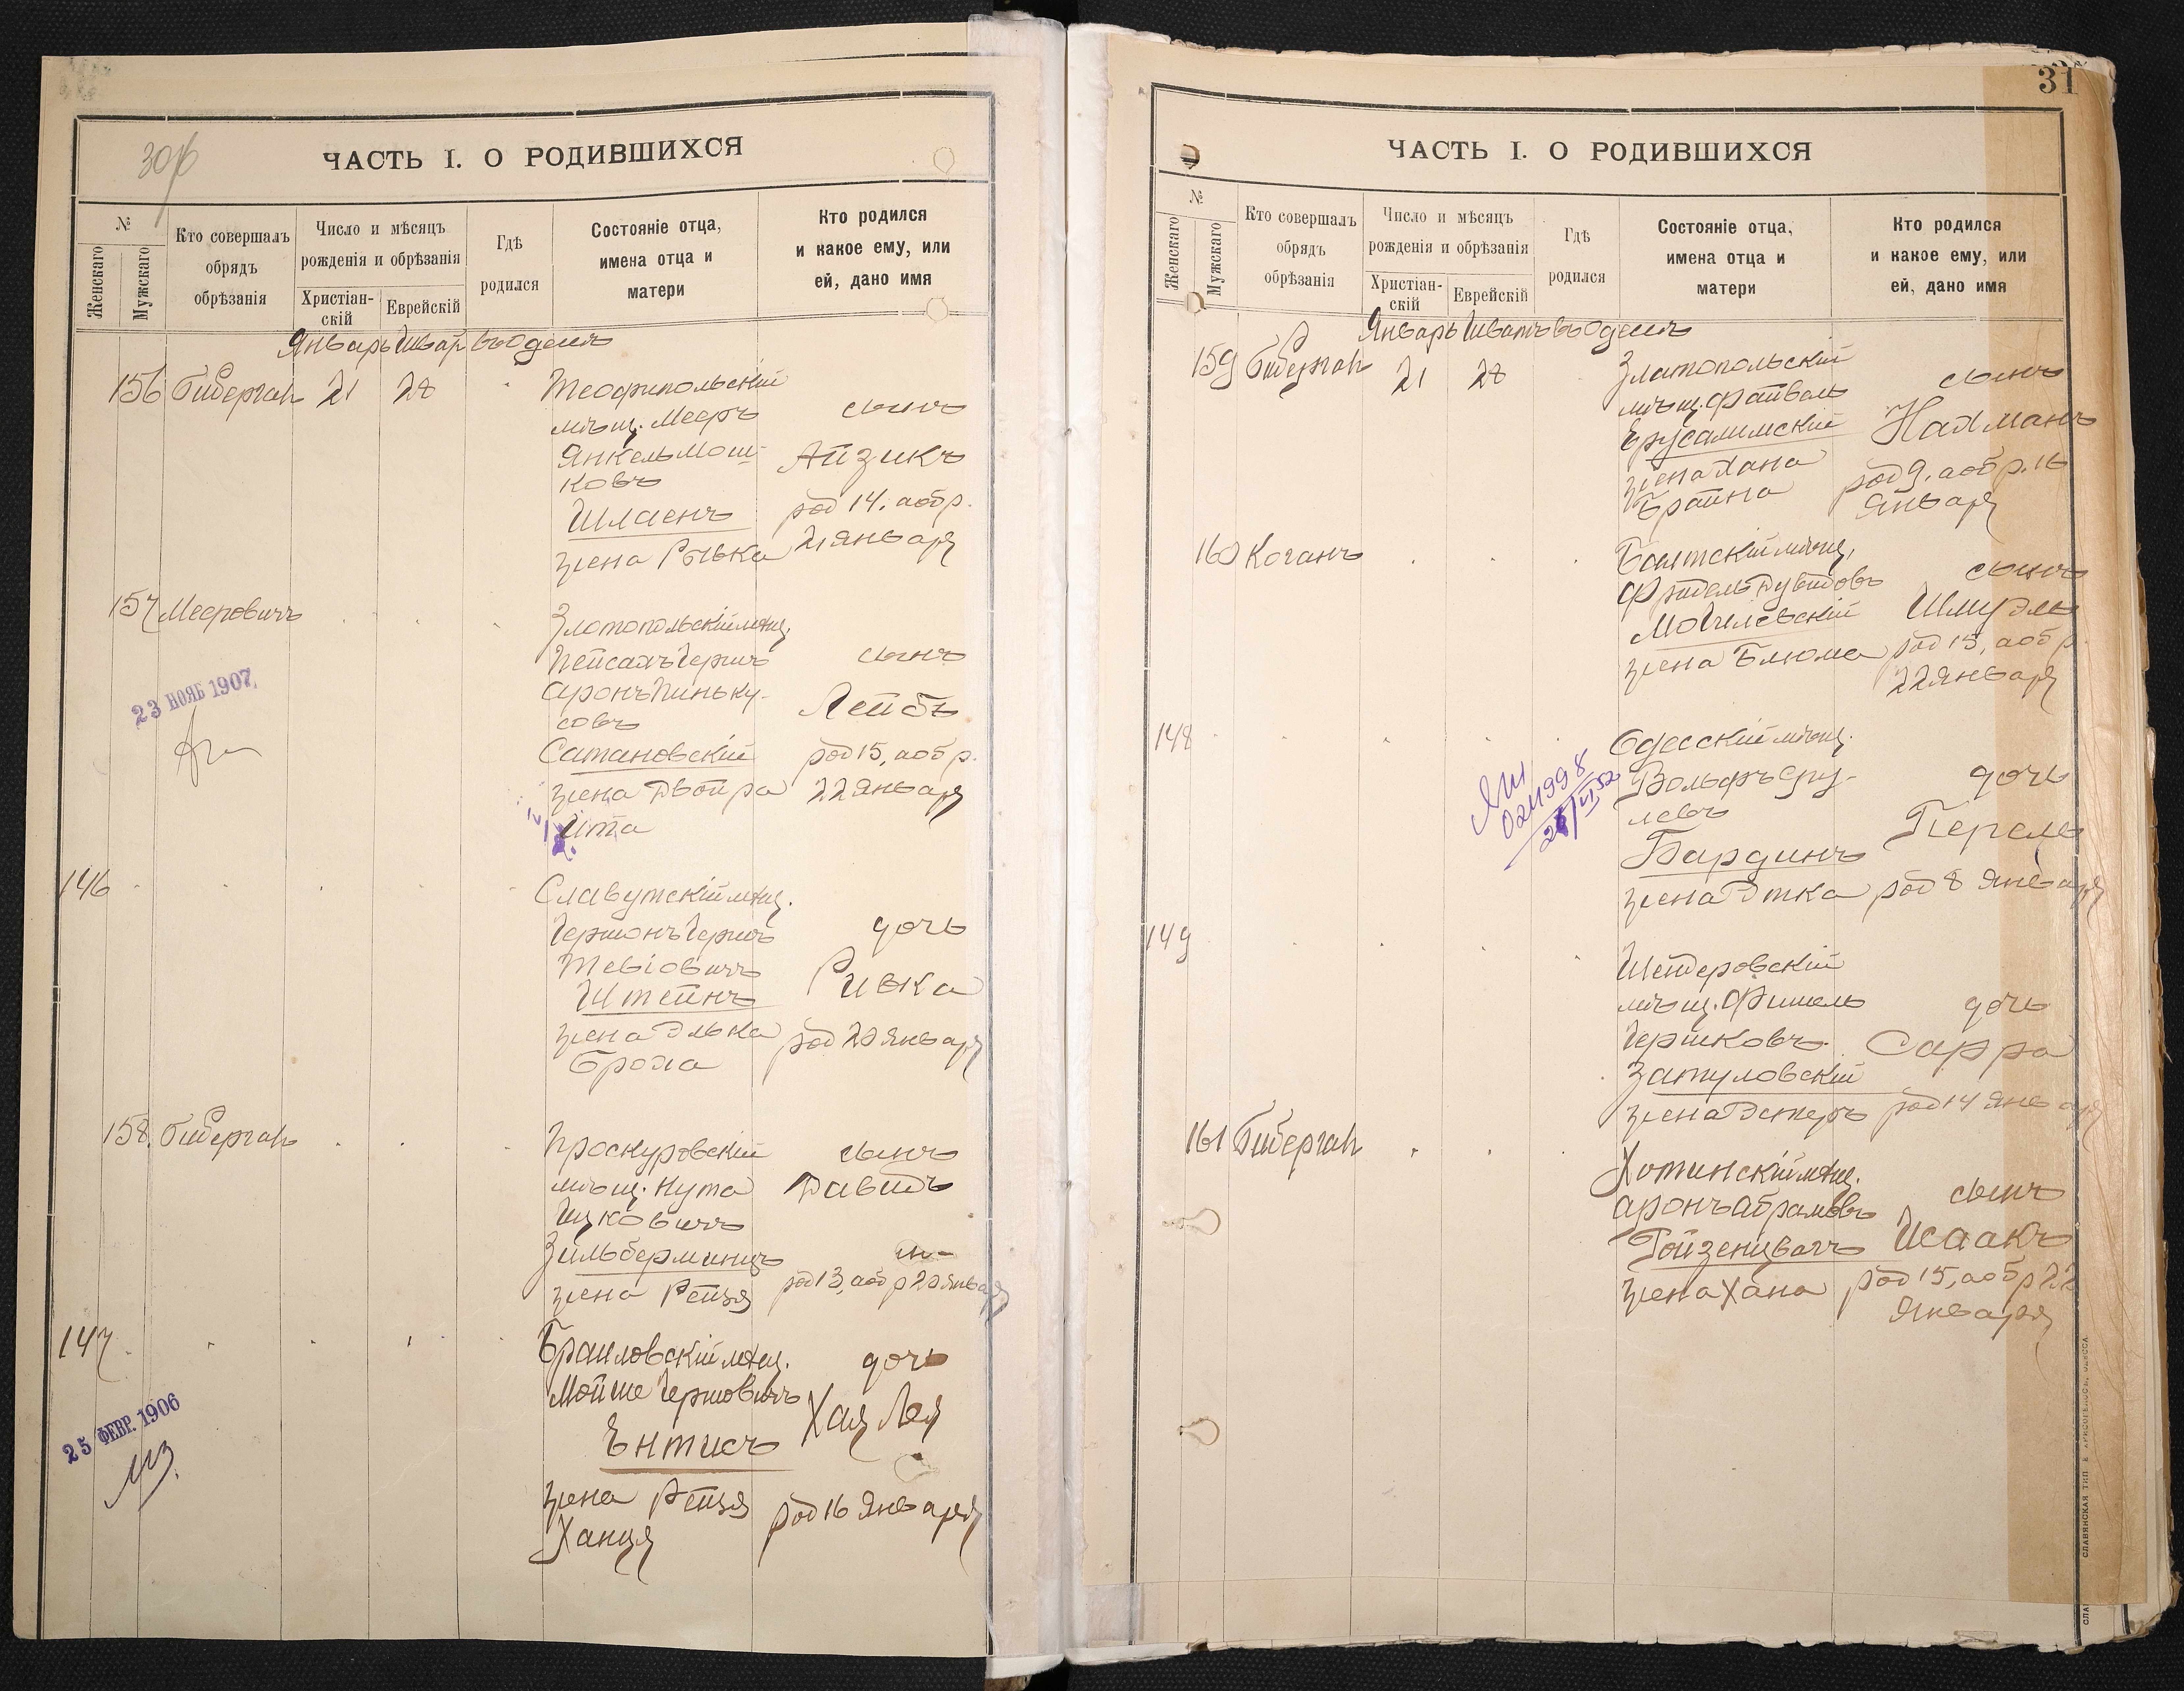 30об
ЧАСТЬ I. О РОДИВШИХСЯ
№
Женскаго
Мужскаго
Кто совершалъ
обрядъ
обрѣзанія
Число и мѣсяцъ
рожденія и обрѣзанія
Христіан-
скій
Еврейскій
Гдѣ
родился
Состояніе отца,
имена отца и
матери
Кто родился
и какое ему, или
ей, дано имя
Январь Шват въ Одессѣ
156 Гибергал 21 28
Теофипольскій
мѣщ. Мееръ
Янкель Мош-
ковъ
Шлаенъ
жена Рывка
сынъ
Айзикъ
род 14. а обр.
21 января
157 Мееровичъ
Злотопольскій мѣщ.
Пейсахъ Гершъ
Аронъ Пиньку-
совъ
Сатановскій
жена Двойра
Ита
сынъ
Лейбъ
род 15, а обр.
22 января
23 НОЯБ 1907
146
Славутскій мѣщ.
Гершонъ Гершъ
Тевіовичъ
Штейнъ
жена Элька
Броха
дочь
Ривка
род 20 января
158. Гибергал
Проскуровскій
мѣщ. Нута
Ицковичъ
Зильберминцъ
жена Рейзя
сынъ
Давидъ
род 13, а обр 20 января
147
Браиловскій мѣщ.
Мойше Гершовичъ
Ентисъ
жена Рейзя
Ханця
дочь
Хая Лея
род 16 января
25 ФЕВР. 1906
31
ЧАСТЬ I. О РОДИВШИХСЯ
№
Женскаго
Мужскаго
Кто совершалъ
обрядъ
обрѣзанія
Число и мѣсяцъ
рожденія и обрѣзанія
Христіан-
скій
Еврейскій
Гдѣ
родился
Состояніе отца,
имена отца и
матери
Кто родился
и какое ему, или
ей, дано имя
Январь Шватъ въ Одессѣ
159 Гибергал 21 28
Златопольскій
мѣщ. Файвель
Ерусалимскій
жена Хана
Брайна
сынъ
Нахманъ
род 9, а обр. 16
января
160 Коганъ
Балтскій мѣщ.
Фридель Дувидовъ
Могилевскій
жена Блюма
сынъ
Шмуэль
род 15, а обр.
22 января
148
Одесскій мѣщ.
Вольфъ Сру-
левъ
Бардинъ
жена Этка
дочь
Перель
род 8 января
149
мѣщ. Фишель
Гершковъ
Затуловскій
жена Эстеръ
дочь
Сарра
род 14 января
161 Гибергал
Хотинскій мѣщ.
Аронъ Абрамовъ
Ройзенцвайгъ
жена Хана
сынъ
Исаакъ
род 15, а обр 22
января